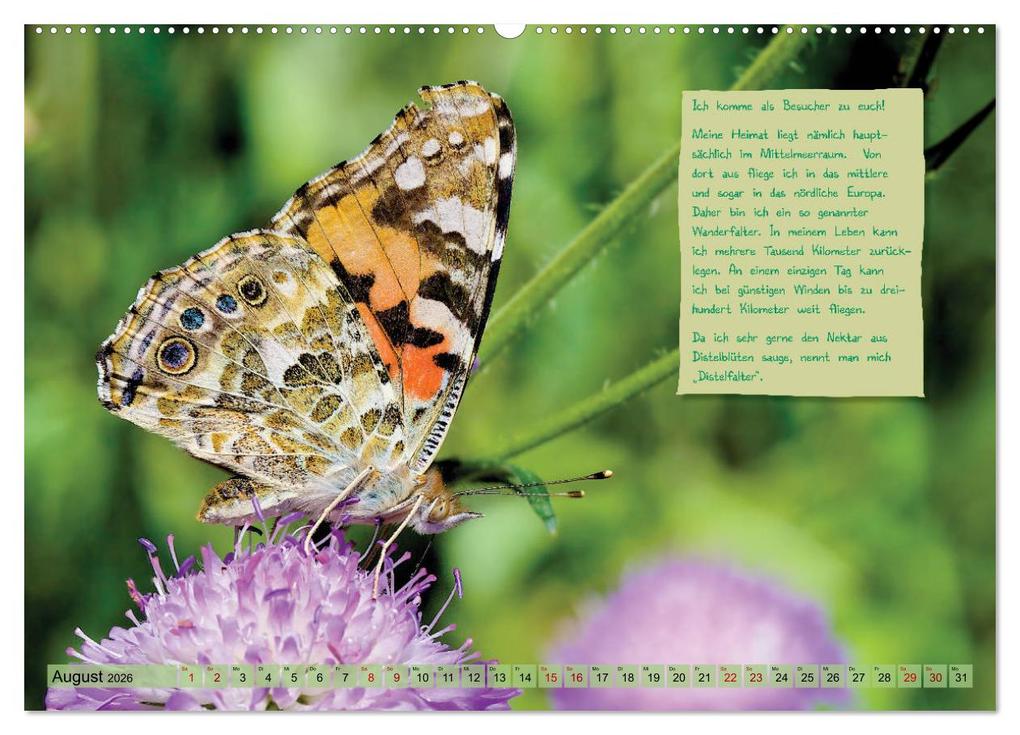 Ich komme als Besucher zu euch!
Meine Heimat liegt nämlich haupt-
sächlich im Mittelmeerraum. Von
dort aus fliege ich in das mittlere
und sogar in das nördliche Europa.
Daher bin ich ein so genannter
Wanderfalter. In meinem Leben kann
ich mehrere Tausend Kilometer zurück-
legen. An einem einzigen Tag kann
ich bei günstigen Winden bis zu drei-
hundert Kilometer weit fliegen.
Da ich sehr gerne den Nektar aus
Distelblüten sauge, nennt man mich
„Distelfalter“.
Sa So Mo Di Mi Do Fr Sa So Mo Di Mi Do Fr Sa So Mo Di Mi Do Fr Sa So Mo Di Mi Do Fr Sa So Mo
August 2026 1 2 3 4 5 6 7 8 9 10 11 12 13 14 15 16 17 18 19 20 21 22 23 24 25 26 27 28 29 30 31